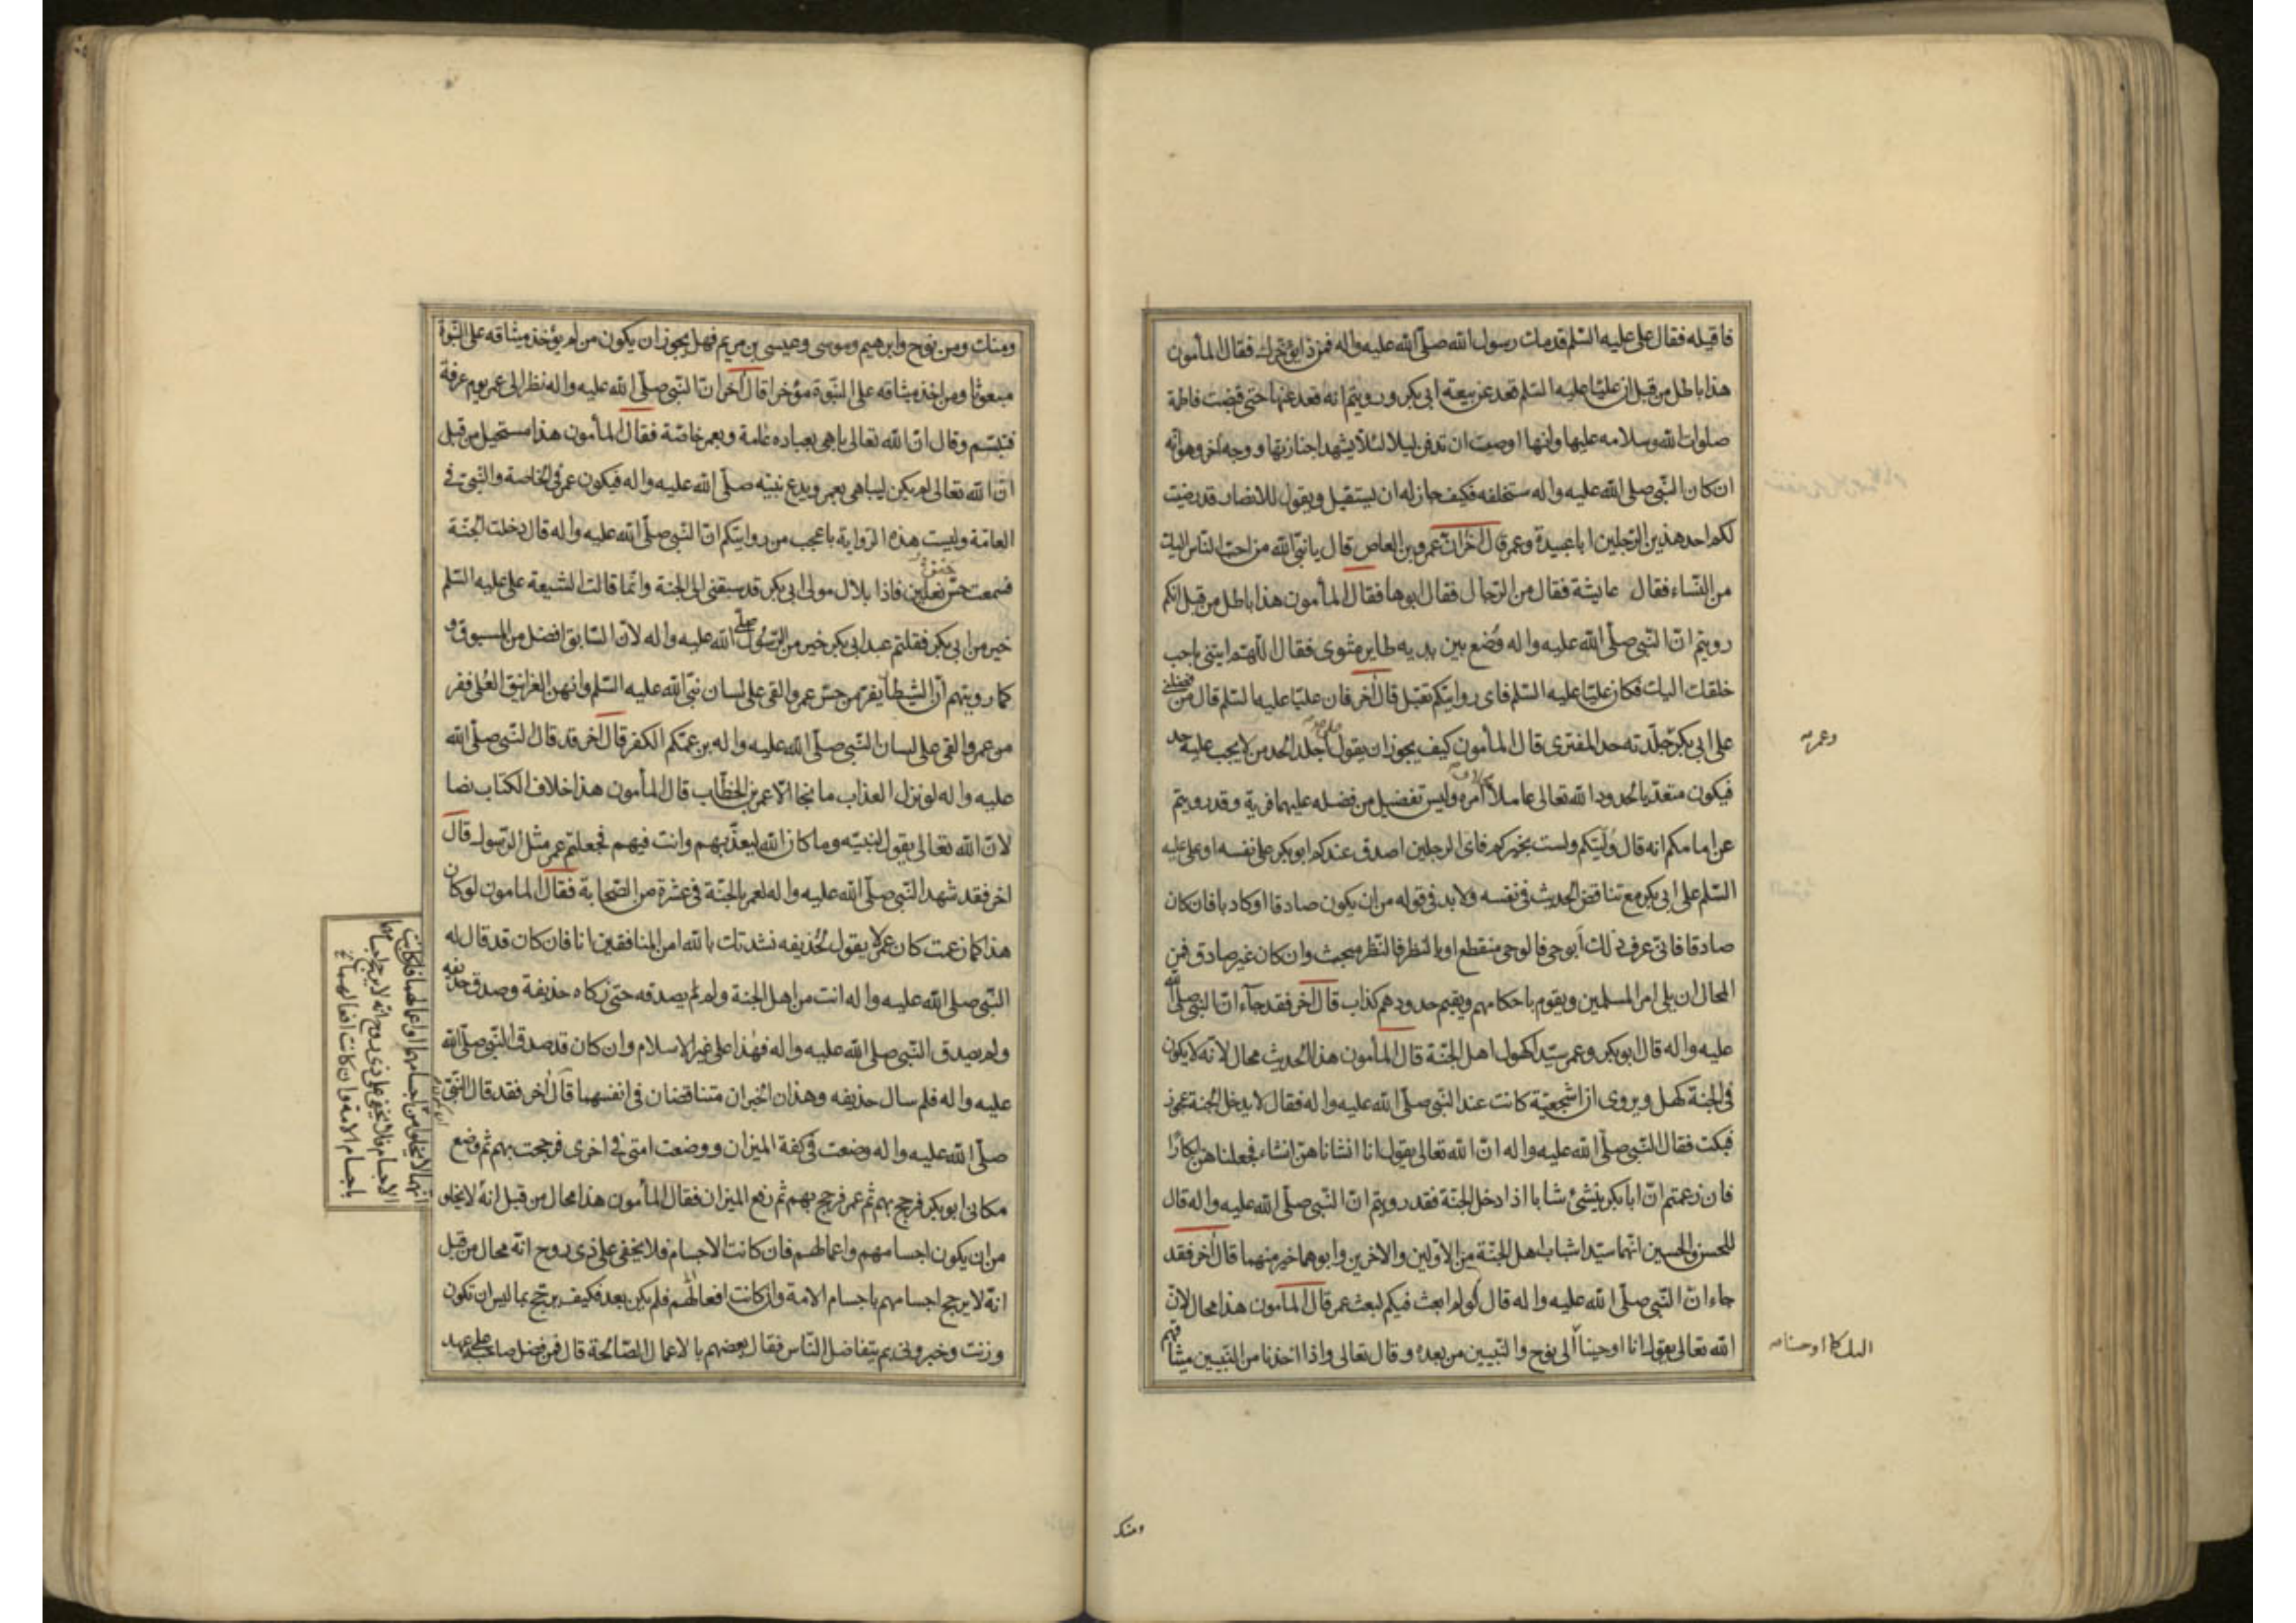 فاقيله فقال علي عليه السلم قد مات رسول الله صلى الله عليه واله فمن ذا يؤخرك فقال المأمون
هذا باطل من قبل ان عليا عليه السلم قعد عن بيعة ابي بكر ورويتم انه قعد عنها حتى قبضت فاطمة
صلوات الله وسلامه عليها وانها اوصت ان تدفن ليلا لئلا يشهدا جنازتها ووجه اخر وهو انه
ان كان النبي صلى الله عليه واله ستخلفه فكيف جاز له ان يستقيل ويقول للانصار قد رضيت
لكم احد هذين الرجلين ابا عبيدة وعمر قال اخر ان عمرو بن العاص قال يا نبي الله من احب الناس اليك
من النساء فقال عايشة فقال من الرجال فقال ابوها فقال المأمون هذا باطل من قبل انكم
رويتم ان النبي صلى الله عليه واله وضع بين يديه طاير مشوى فقال اللهم ايتني باحب
خلقك اليك فكان عليا عليه السلم فاي روايتكم تقبل قال اخر فان عليا عليه السلم قال من فضلني
على ابي بكر جلدته حد المفترى قال المأمون كيف يجوز ان يقول اجلد الحد من لا يجب عليه حد
وعمر صح
فيكون متعديا لحدود الله تعالى عاملا امره وليس تفضيل من فضله عليهما فرية وقد رويتم
عن امامكم انه قال وليتكم ولست بخيركم فاي الرجلين اصدق عندكم ابو بكر على نفسه او علي عليه
السلم على ابي بكر مع تناقض الحديث في نفسه ولا بد في قوله من ان يكون صادقا او كاذبا فان كان
صادقا فاني عرف ذلك أبوحي فالوحي منقطع او بالنظر فالنظر مبحث وان كان غير صادق فمن
المحال ان يلي امر المسلمين ويقوم باحكامهم ويقيم حدودهم كذاب قال اخر فقد جاء ان النبي صلى الله
عليه واله قال ابو بكر وعمر سيدا كهول اهل الجنة قال المأمون هذا الحديث محال لانه لا يكون
في الجنة كهل ويروى ان اشجعية كانت عند النبي صلى الله عليه واله فقال لا يدخل الجنة عجوز
فبكت فقال النبي صلى الله عليه واله ان الله تعالى يقول انا انشاناهن انشاء فجعلناهن ابكارا
فان زعمتم ان ابا بكر ينشئ شابا اذا دخل الجنة فقد رويتم ان النبي صلى الله عليه واله قال
للحسن والحسين انهما سيدا شباب اهل الجنة من الاولين والاخرين وابوهما خير منهما قال اخر فقد
جاء ان النبي صلى الله عليه واله قال لو لم ابعث فيكم لبعث عمر قال المأمون هذا محال لان
الله تعالى يقول انا اوحينا الى نوح والنبيين من بعده وقال تعالى واذ اخذنا من النبيين ميثاقهم
اليك كما اوحينا صح
ومنك
ومنك ومن نوح وابرهيم وموسى وعيسى بن مريم فهل يجوز ان يكون من لم يؤخذ ميثاقه على النبوة
مبعوثا ومن اخذ ميثاقه على النبوة مؤخرا قال اخر ان النبي صلى الله عليه واله نظر الى عمر يوم عرفة
فتبسم وقال ان الله تعالى باهى بعباده عامة وبعمر خاصة فقال المأمون هذا مستحيل من قبل
ان الله تعالى لم يكن ليباهي بعمر ويدع نبيه صلى الله عليه واله فيكون عمر في الخاصة والنبي في
العامة وليست هذه الرواية باعجب من روايتكم ان النبي صلى الله عليه واله قال دخلت الجنة
فسمعت حس نعلين فاذا بلال مولى ابي بكر قد سبقني الى الجنة وانما قالت الشيعة علي عليه السلم
خير من ابي بكر فقلتم عبد ابي بكر خير من الرسول صلى الله عليه واله لان السابق افضل من المسبوق و
كما رويتم ان الشيطان يفر من حس عمر والقى على لسان نبي الله عليه السلم وانهن الغرانيق العلى ففر
من عمر والقى على لسان النبي صلى الله عليه واله بزعمكم الكفر قال اخر قد قال النبي صلى الله
عليه واله لو نزل العذاب ما نجا الا عمر بن الخطاب قال المأمون هذا خلاف الكتاب نصا
لان الله تعالى يقول لنبيه وما كان الله ليعذبهم وانت فيهم فجعلتم عمر مثل الرسول قال
اخر فقد شهد النبي صلى الله عليه واله لعمر بالجنة في عشرة من الصحابة فقال المامون لو كان
هذا كما زعمت كان عمر لا يقول لحذيفه نشدتك بالله امن المنافقين انا فان كان قد قال له
النبي صلى الله عليه واله انت من اهل الجنة ولم يصدقه حتى زكاه حذيفة وصدق حذيفه
ولم يصدق النبي صلى الله عليه واله فهذا على غير الاسلام وان كان قد صدق النبي صلى الله
عليه واله فلم سال حذيفه وهذان الخبران متناقضان في انفسهما قال اخر فقد قال النبي
صلى الله عليه واله وضعت في كفة الميزان ووضعت امتي في اخرى فرجحت بهم ثم وضع
مكاني ابو بكر فرجح بهم ثم عمر فرجح بهم ثم رفع الميزان فقال المأمون هذا محال من قبل انه لا يخلو
من ان يكون اجسامهم واعمالهم فان كانت الاجسام فلا يخفى على ذي روح انه محال من قبل
انه لا يرجح اجسامهم باجسام الامة وان كانت افعالهم فلم يكن بعد فكيف يرجح بما ليس ان تكون
وزنت وخبروني بم يتفاضل الناس فقال بعضهم بالاعمال الصالحة قال فمن فضل صاحبه على عهد
انهما لا يخلو من اجسامهما او اعمالهما فان كانت
الاجسام فلا يخفى على ذي روح انه لا يرجح اجسامهما
باجسام الامة وان كانت افعالهما